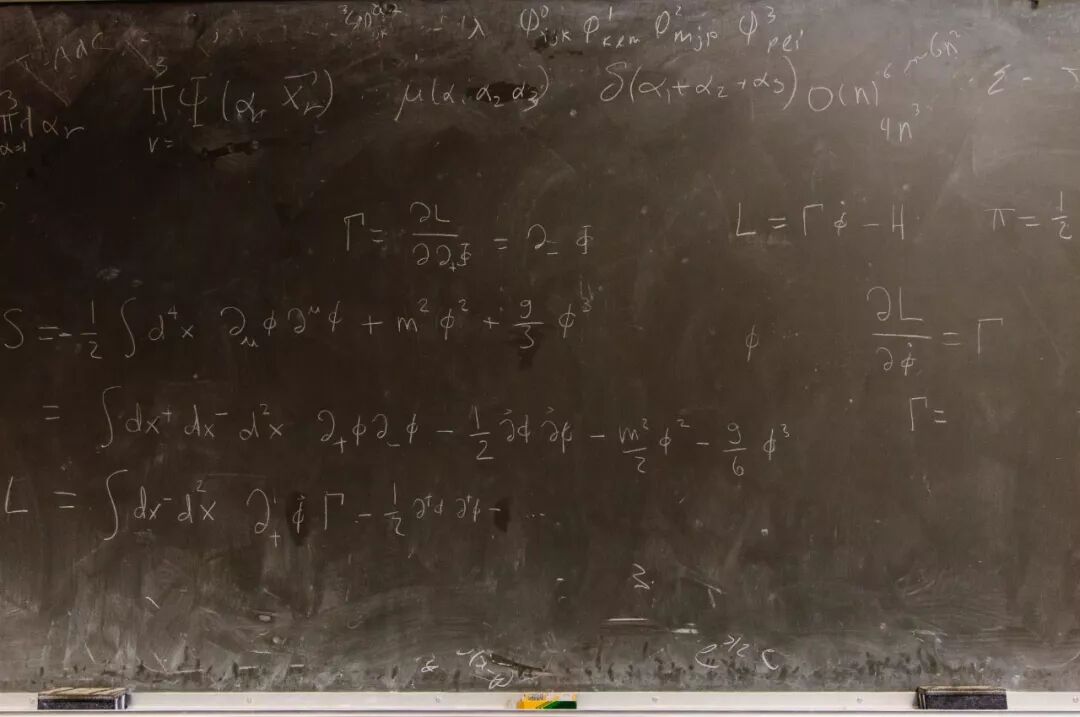 λ φ⁰ᵢⱼₖ φ¹ₖₑₘ φ²ₘⱼₚ φ³ₚₑᵢ
³π dαᵣ
α=1
³π Φ(αᵣ x⃗ᵣ) μ(α₁ α₂ α₃) δ(α₁+α₂+α₃) O(n)⁶ ~6n²
r= 4n³
Γ = ∂L/∂∂₊Φ = ∂₋Φ L = Γ φ̇ − H π = 1/2
S = -1/2 ∫ d⁴x ∂_μ φ ∂^μ φ + m² φ² + g/3 φ³ φ ∂L/∂φ̇ = Γ
= ∫ dx⁺ dx⁻ d²x ∂₊φ ∂₋φ − 1/2 ∂⃗φ ∂⃗φ − m²/2 φ² − g/6 φ³ Γ =
L = ∫ dx⁻ d²x ∂₊φ Γ − 1/2 ∂⁺φ ∂⁺φ − ...